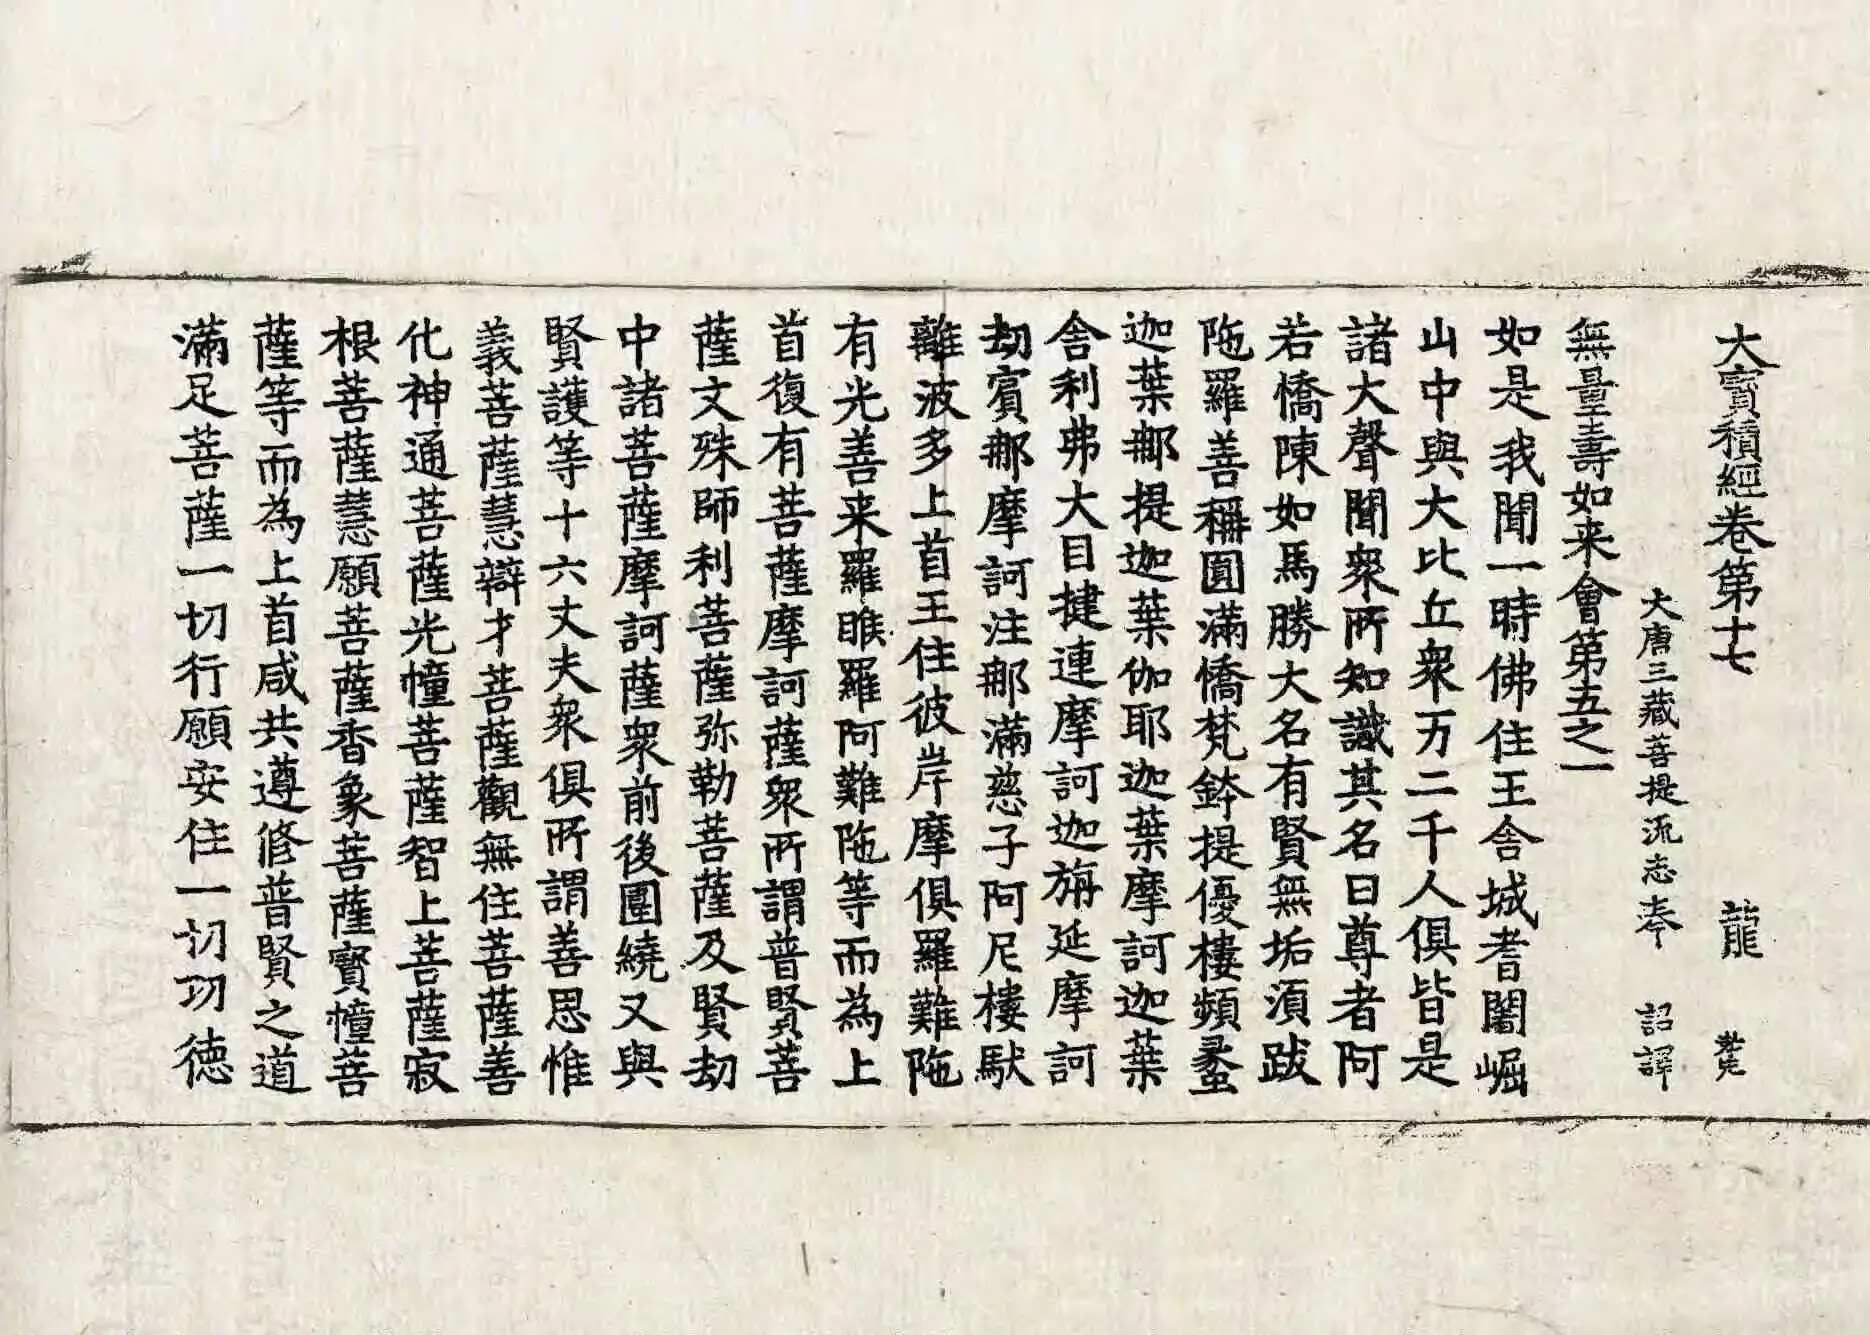 大寳積經卷第十七 龍
大唐三藏菩提流志奉 詔譯
無量壽如来會第五之一
如是我聞一時佛住王舍城耆闍崛
山中與大比丘衆万二千人俱皆是
諸大聲聞衆所知識其名曰尊者阿
若憍陳如馬勝大名有賢無垢湏跋
陁羅善稱圓滿憍梵鉢提優樓頻蠡
迦葉那提迦葉伽耶迦葉摩訶迦葉
舍利弗大目揵連摩訶迦旃延摩訶
劫賓那摩訶注那滿慈子阿尼樓馱
離波多上首王住彼岸摩俱羅難陁
有光善来羅睺羅阿難陁等而為上
首復有菩薩摩訶薩衆所謂普賢菩
薩文殊師利菩薩弥勒菩薩及賢劫
中諸菩薩摩訶薩衆前後圍繞又與
賢護等十六丈夫衆俱所謂善思惟
義菩薩慧辯才菩薩觀無住菩薩善
化神通菩薩光幢菩薩智上菩薩寂
根菩薩慧願菩薩香象菩薩寳幢菩
薩等而為上首咸共遵修普賢之道
滿足菩薩一切行願安住一切功德